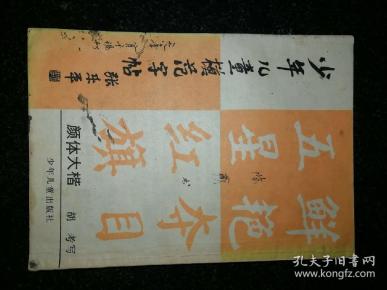 少年儿童模范字帖
张乐平
五星红旗
鲜艳夺目
颜体大楷
胡考写
少年儿童出版社
孔夫子旧书网